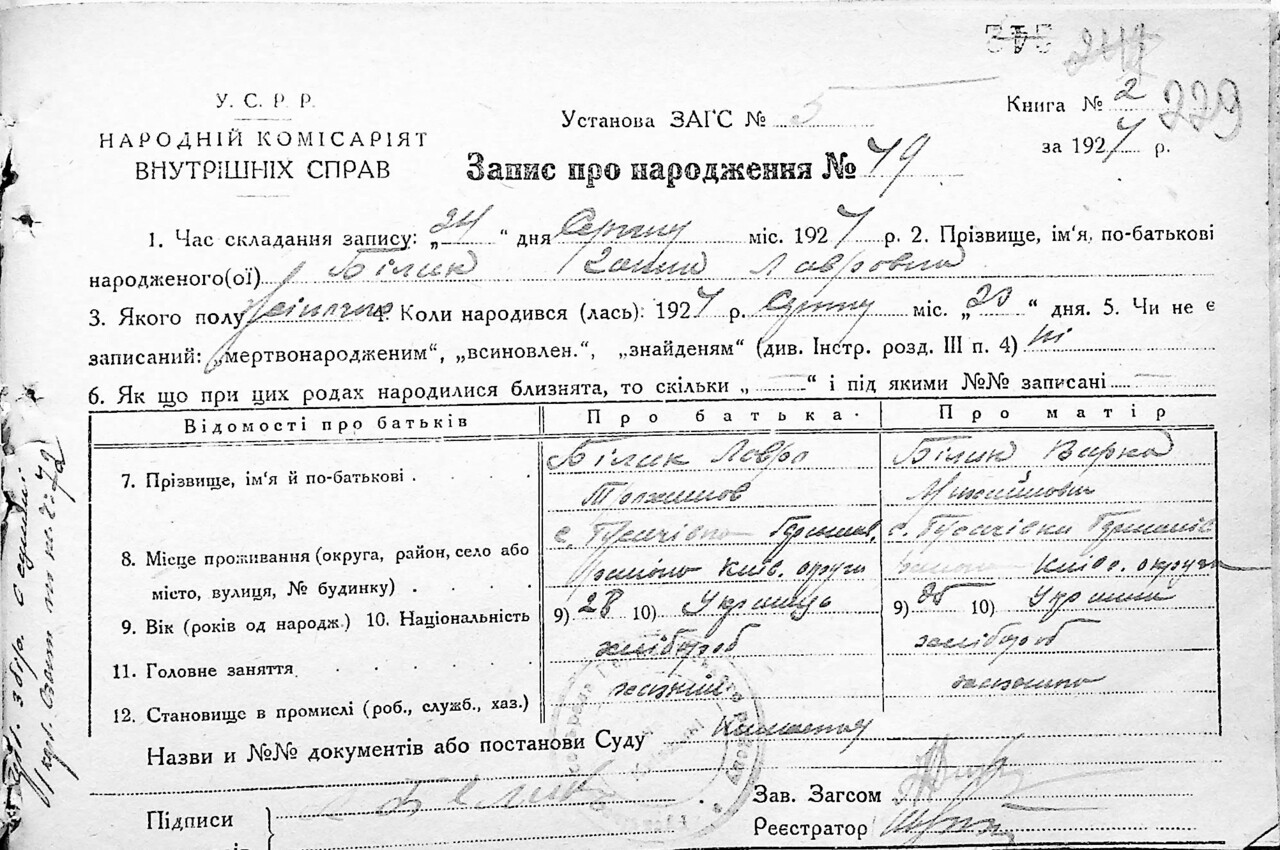 343 247
229
У. С. Р. Р.
НАРОДНІЙ КОМІСАРІЯТ
ВНУТРІШНІХ СПРАВ
Установа ЗАГС № 5
Книга № 2
за 1927 р.
Запис про народження № 79
1. Час складання запису: „24“ дня Серпня міс. 1927 р. 2. Прізвище, ім'я, по-батькові
народженого(ої) Білик Ганна Лавровна
3. Якого полу жіночого 4. Коли народився (лась): 1927 р. Серпня міс. „23“ дня. 5. Чи не є
записаний: „мертвонародженим“, „всиновлен.“, „знайденям“ (див. Інстр. розд. III п. 4) Ні
6. Як що при цих родах народилися близнята, то скільки „ — “ і під якими №№ записані —
Відомості про батьків
Про батька
Про матір
7. Прізвище, ім'я й по-батькові
Білик Лавро
Білик Варка
Михайловна
8. Місце проживання (округа, район, село або
місто, вулиця, № будинку)
с. Гусачівка
району Київ. округи
с. Гусачівки
Київ. округи
9. Вік (років од народж.) 10. Національність
9) 28 10) Українець
9) 10) Українка
11. Головне заняття
хлібороб
хлібороб
12. Становище в промислі (роб., служб., хаз.)
Назви и №№ документів або постанови Суду
Підписи
Білик
Зав. Загсом
Реєстратор